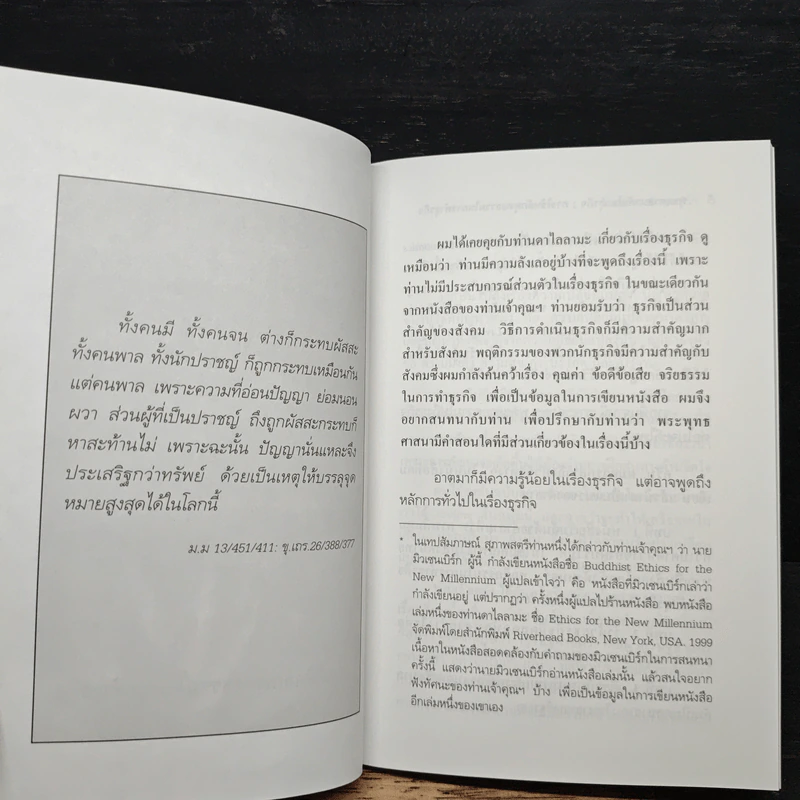 ทั้งคนมี ทั้งคนจน ต่างก็กระทบผัสสะ
ทั้งคนพาล ทั้งนักปราชญ์ ก็ถูกกระทบเหมือนกัน
แต่คนพาล เพราะความที่อ่อนปัญญา ย่อมนอน
ผวา ส่วนผู้ที่เป็นปราชญ์ ถึงถูกผัสสะกระทบก็
หาสะท้านไม่ เพราะฉะนั้น ปัญญานั่นแหละจึง
ประเสริฐกว่าทรัพย์ ด้วยเป็นเหตุให้บรรลุจุด
หมายสูงสุดได้ในโลกนี้
ม.ม 13/451/411: ขุ.เถร.26/388/377
ผมได้เคยคุยกับท่านดาไลลามะ เกี่ยวกับเรื่องธุรกิจ ดู
เหมือนว่า ท่านมีความลังเลอยู่บ้างที่จะพูดถึงเรื่องนี้ เพราะ
ท่านไม่มีประสบการณ์ส่วนตัวในเรื่องธุรกิจ ในขณะเดียวกัน
จากหนังสือของท่านเจ้าคุณฯ ท่านยอมรับว่า ธุรกิจเป็นส่วน
สำคัญของสังคม วิธีการดำเนินธุรกิจก็มีความสำคัญมาก
สำหรับสังคม พฤติกรรมของพวกนักธุรกิจมีความสำคัญกับ
สังคมซึ่งผมกำลังค้นคว้าเรื่อง คุณค่า ข้อดีข้อเสีย จริยธรรม
ในการทำธุรกิจ เพื่อเป็นข้อมูลในการเขียนหนังสือ ผมจึง
อยากสนทนากับท่าน เพื่อปรึกษากับท่านว่า พระพุทธ
ศาสนามีคำสอนใดที่มีส่วนเกี่ยวข้องในเรื่องนี้บ้าง
อาตมาก็มีความรู้น้อยในเรื่องธุรกิจ แต่อาจพูดถึง
หลักการทั่วไปในเรื่องธุรกิจ
* ในเทปสัมภาษณ์ สุภาพสตรีท่านหนึ่งได้กล่าวกับท่านเจ้าคุณฯ ว่า นาย
มิวเซนเบิร์ก ผู้นี้ กำลังเขียนหนังสือชื่อ Buddhist Ethics for the
New Millennium ผู้แปลเข้าใจว่า คือ หนังสือที่มิวเซนเบิร์กเล่าว่า
กำลังเขียนอยู่ แต่ปรากฏว่า ครั้งหนึ่งผู้แปลไปร้านหนังสือ พบหนังสือ
เล่มหนึ่งของท่านดาไลลามะ ชื่อ Ethics for the New Millennium
จัดพิมพ์โดยสำนักพิมพ์ Riverhead Books, New York, USA. 1999
เนื้อหาในหนังสือสอดคล้องกับคำถามของมิวเซนเบิร์กในการสนทนา
ครั้งนี้ แสดงว่านายมิวเซนเบิร์กอ่านหนังสือเล่มนั้น แล้วสนใจอยาก
ฟังทัศนะของท่านเจ้าคุณฯ บ้าง เพื่อเป็นข้อมูลในการเขียนหนังสือ
อีกเล่มหนึ่งของเขาเอง